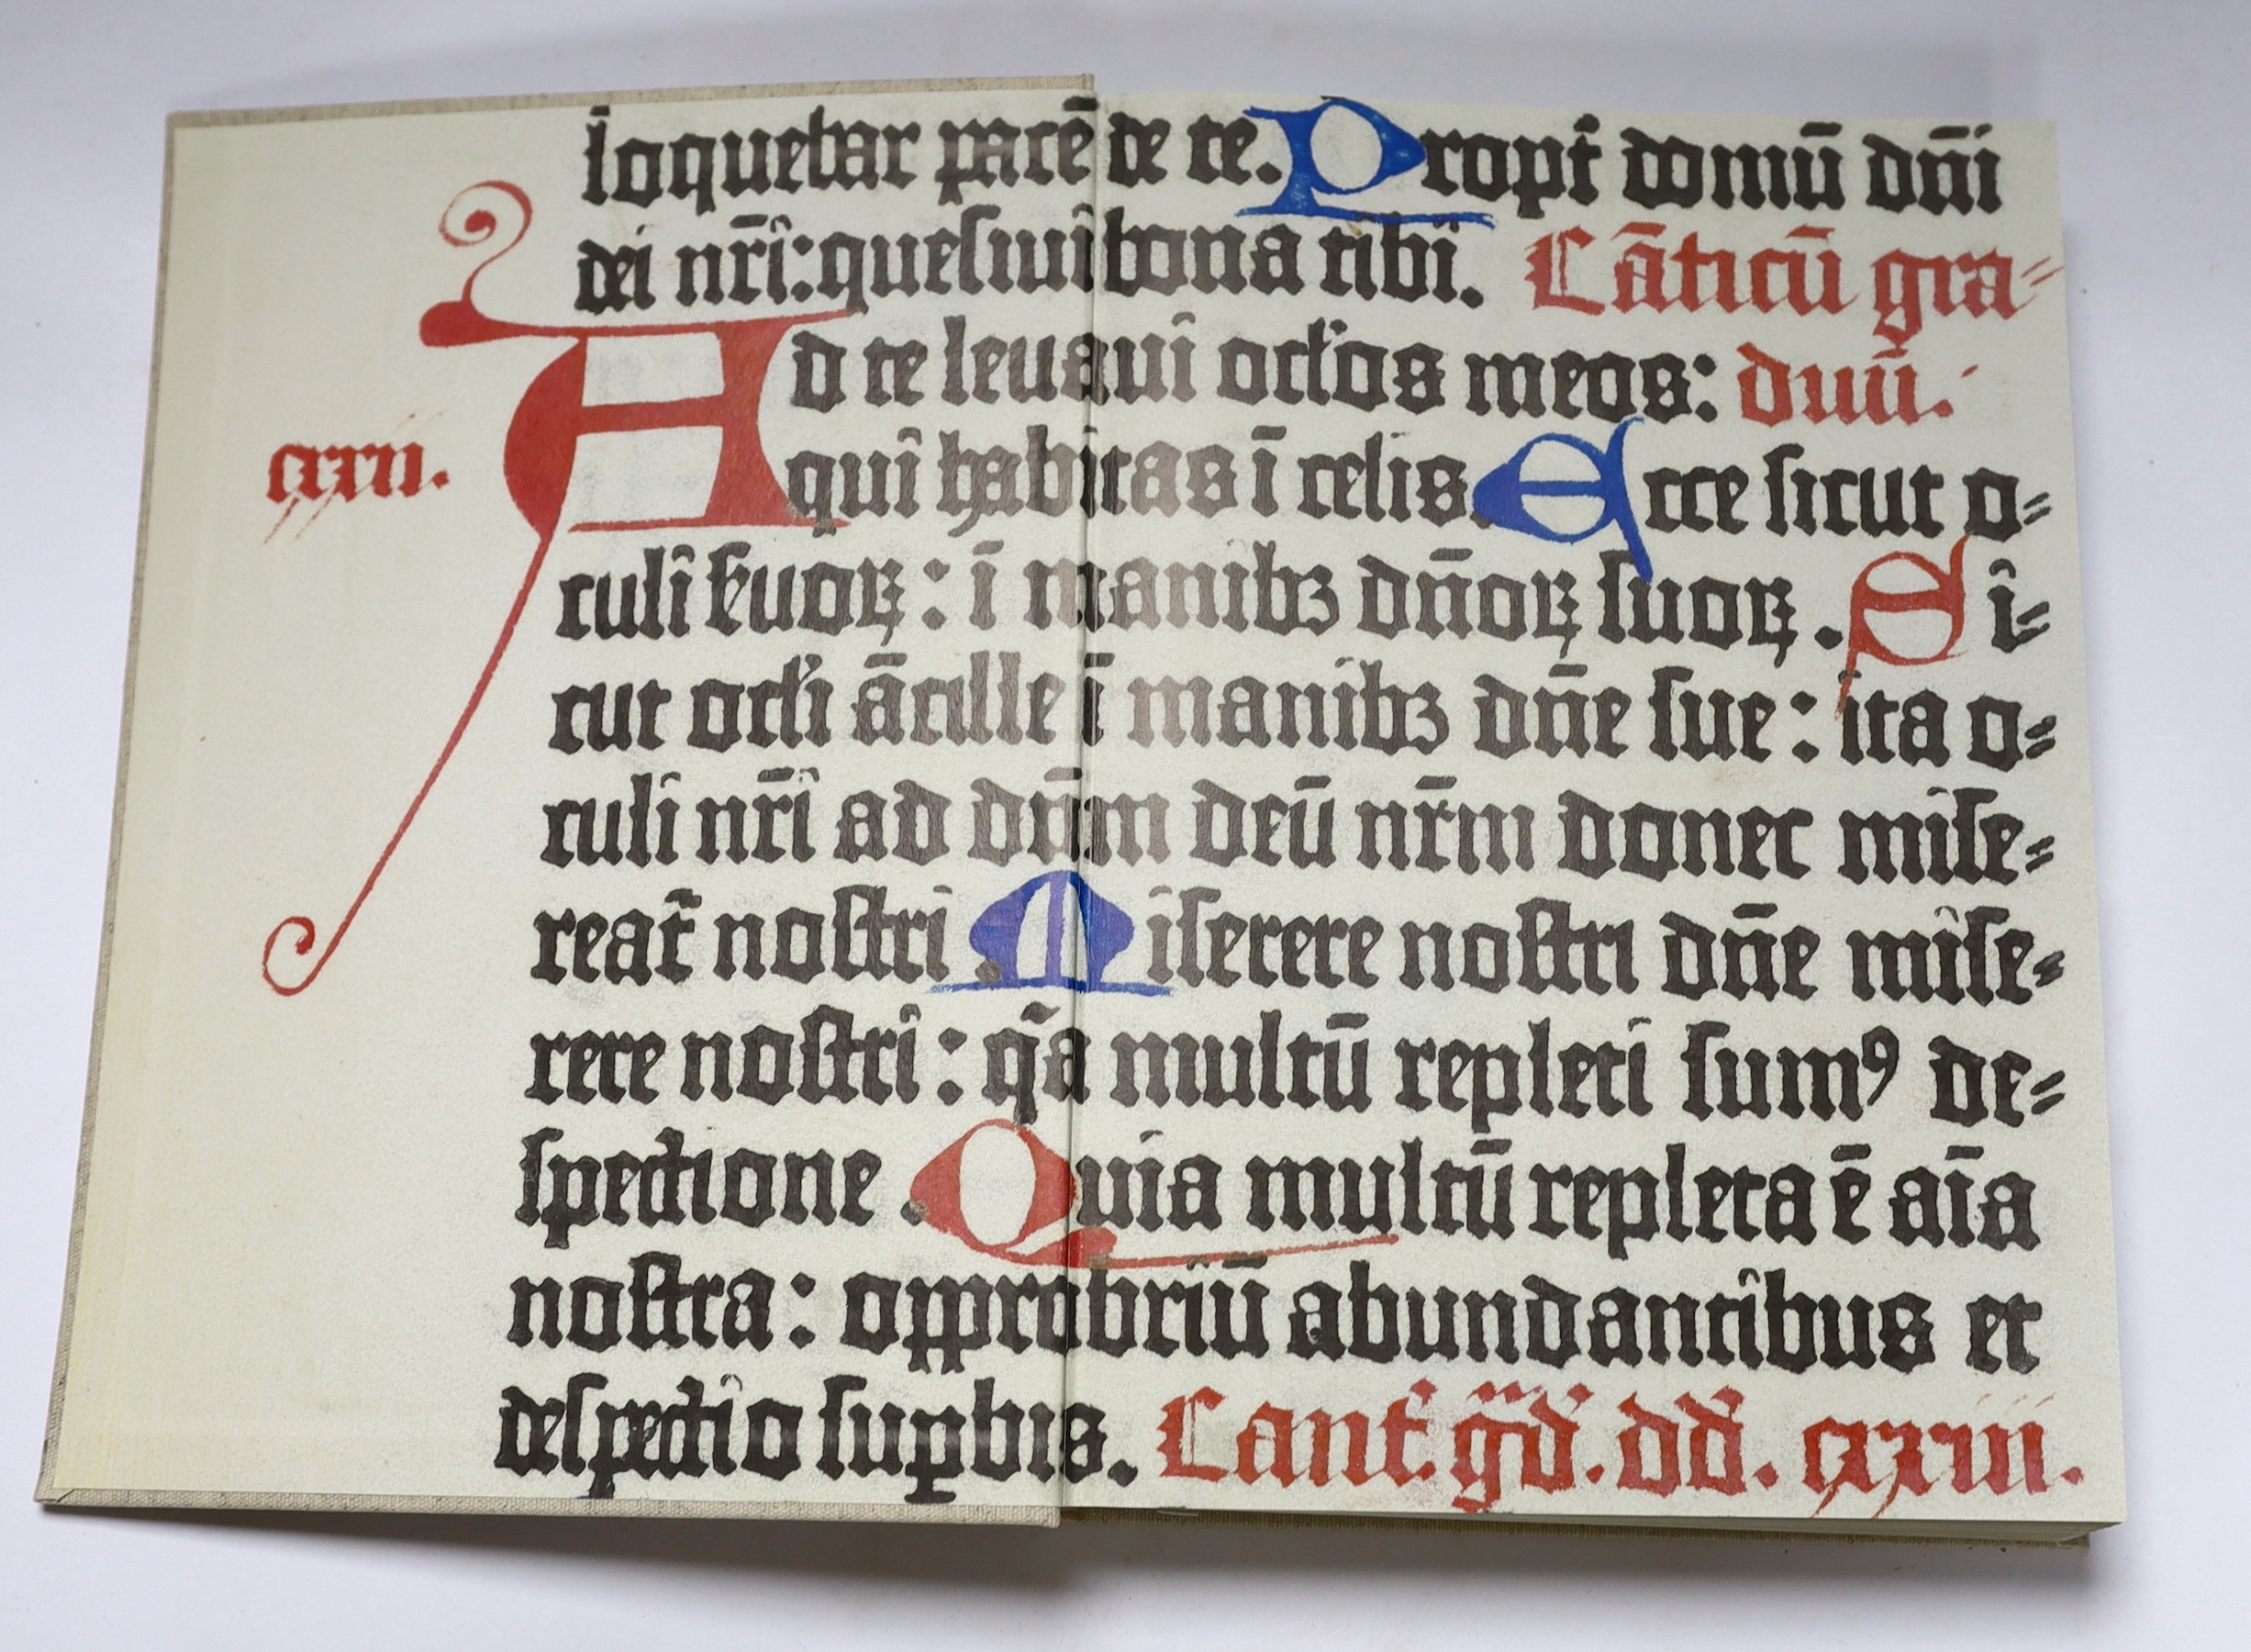 loquebar pacē de te. Propt̄ domū dn̄i
dei nr̄i: quesiui bona tibi. Cāticū gra=
Ad te leuaui oc̄los meos: duū.
cxxii. qui habitas ī celis. Ecce sicut o=
culi s̄uoꝝ: ī manibꝫ dn̄oꝝ suoꝝ. Si=
cut oc̄li ācille ī manibꝫ dn̄e sue: ita o=
culi nr̄i ad dn̄m deū nr̄m donec mise=
reat̄ nostri. Miserere nostri dn̄e mise=
rere nostri: q̄a multū repleti sumꝰ de=
spectione. Quia multū repleta ē aīa
nostra: opprobriū abundantibus et
despectio suꝑbis. Cant̄. ḡd̄. dd̄. cxxiii.